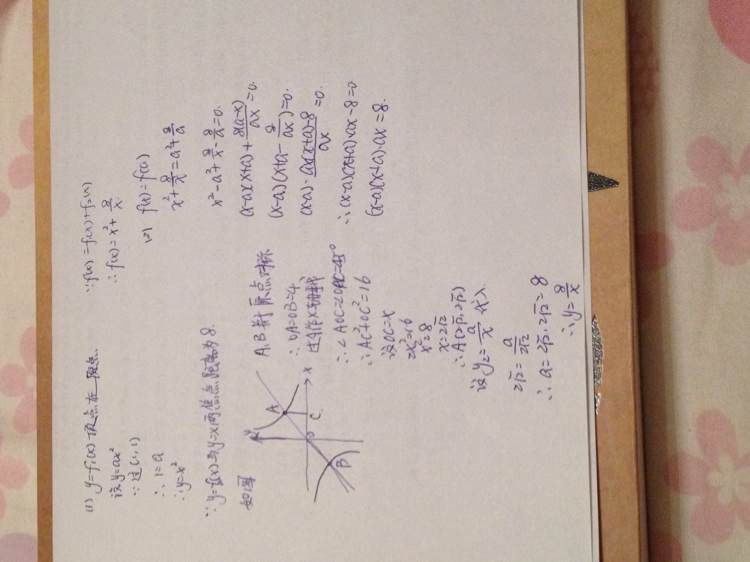 (1) y=f₁(x) 顶点在原点.
设y=ax²
∵过(1,1)
∴1=a
∴y=x²
∵y=f₂(x)与y=x两焦点距离为8.
如图
y
A
O
C
x
B
A,B关于原点对称
∴OA=OB=4.
过A作x轴垂线
∴∠AOC=∠OAC=45°
∴AC²+OC²=16
设OC=x
2x²=16
x²=8
x=2√2
∴A(2√2,2√2)
设y₂=a/x 代入
2√2=a/2√2
∴a=2√2·2√2=8
∴y=8/x
∵f(x)=f₁(x)+f₂(x)
∴f(x)=x²+8/x
(2) f(x)=f(a)
x²+8/x=a²+8/a
x²-a²+8/x-8/a=0.
(x-a)(x+a)+8(a-x)/ax=0.
(x-a)(x+a-8/ax)=0.
(x-a)·ax(x+a)-8/ax=0.
∴(x-a)(x+a)·ax-8=0
(x-a)(x+a)·ax=8.